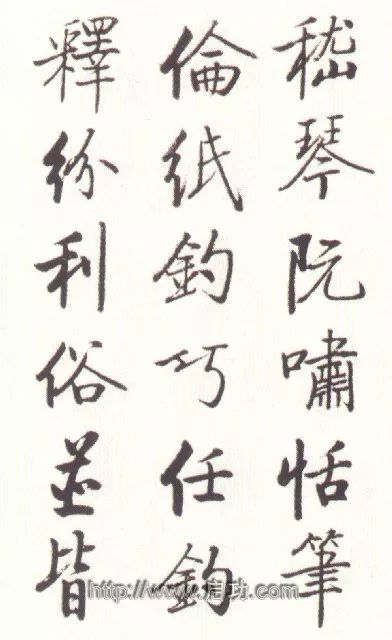 嵇琴阮嘯恬筆
倫紙鈞巧任釣
釋紛利俗並皆
http://www.启功.com